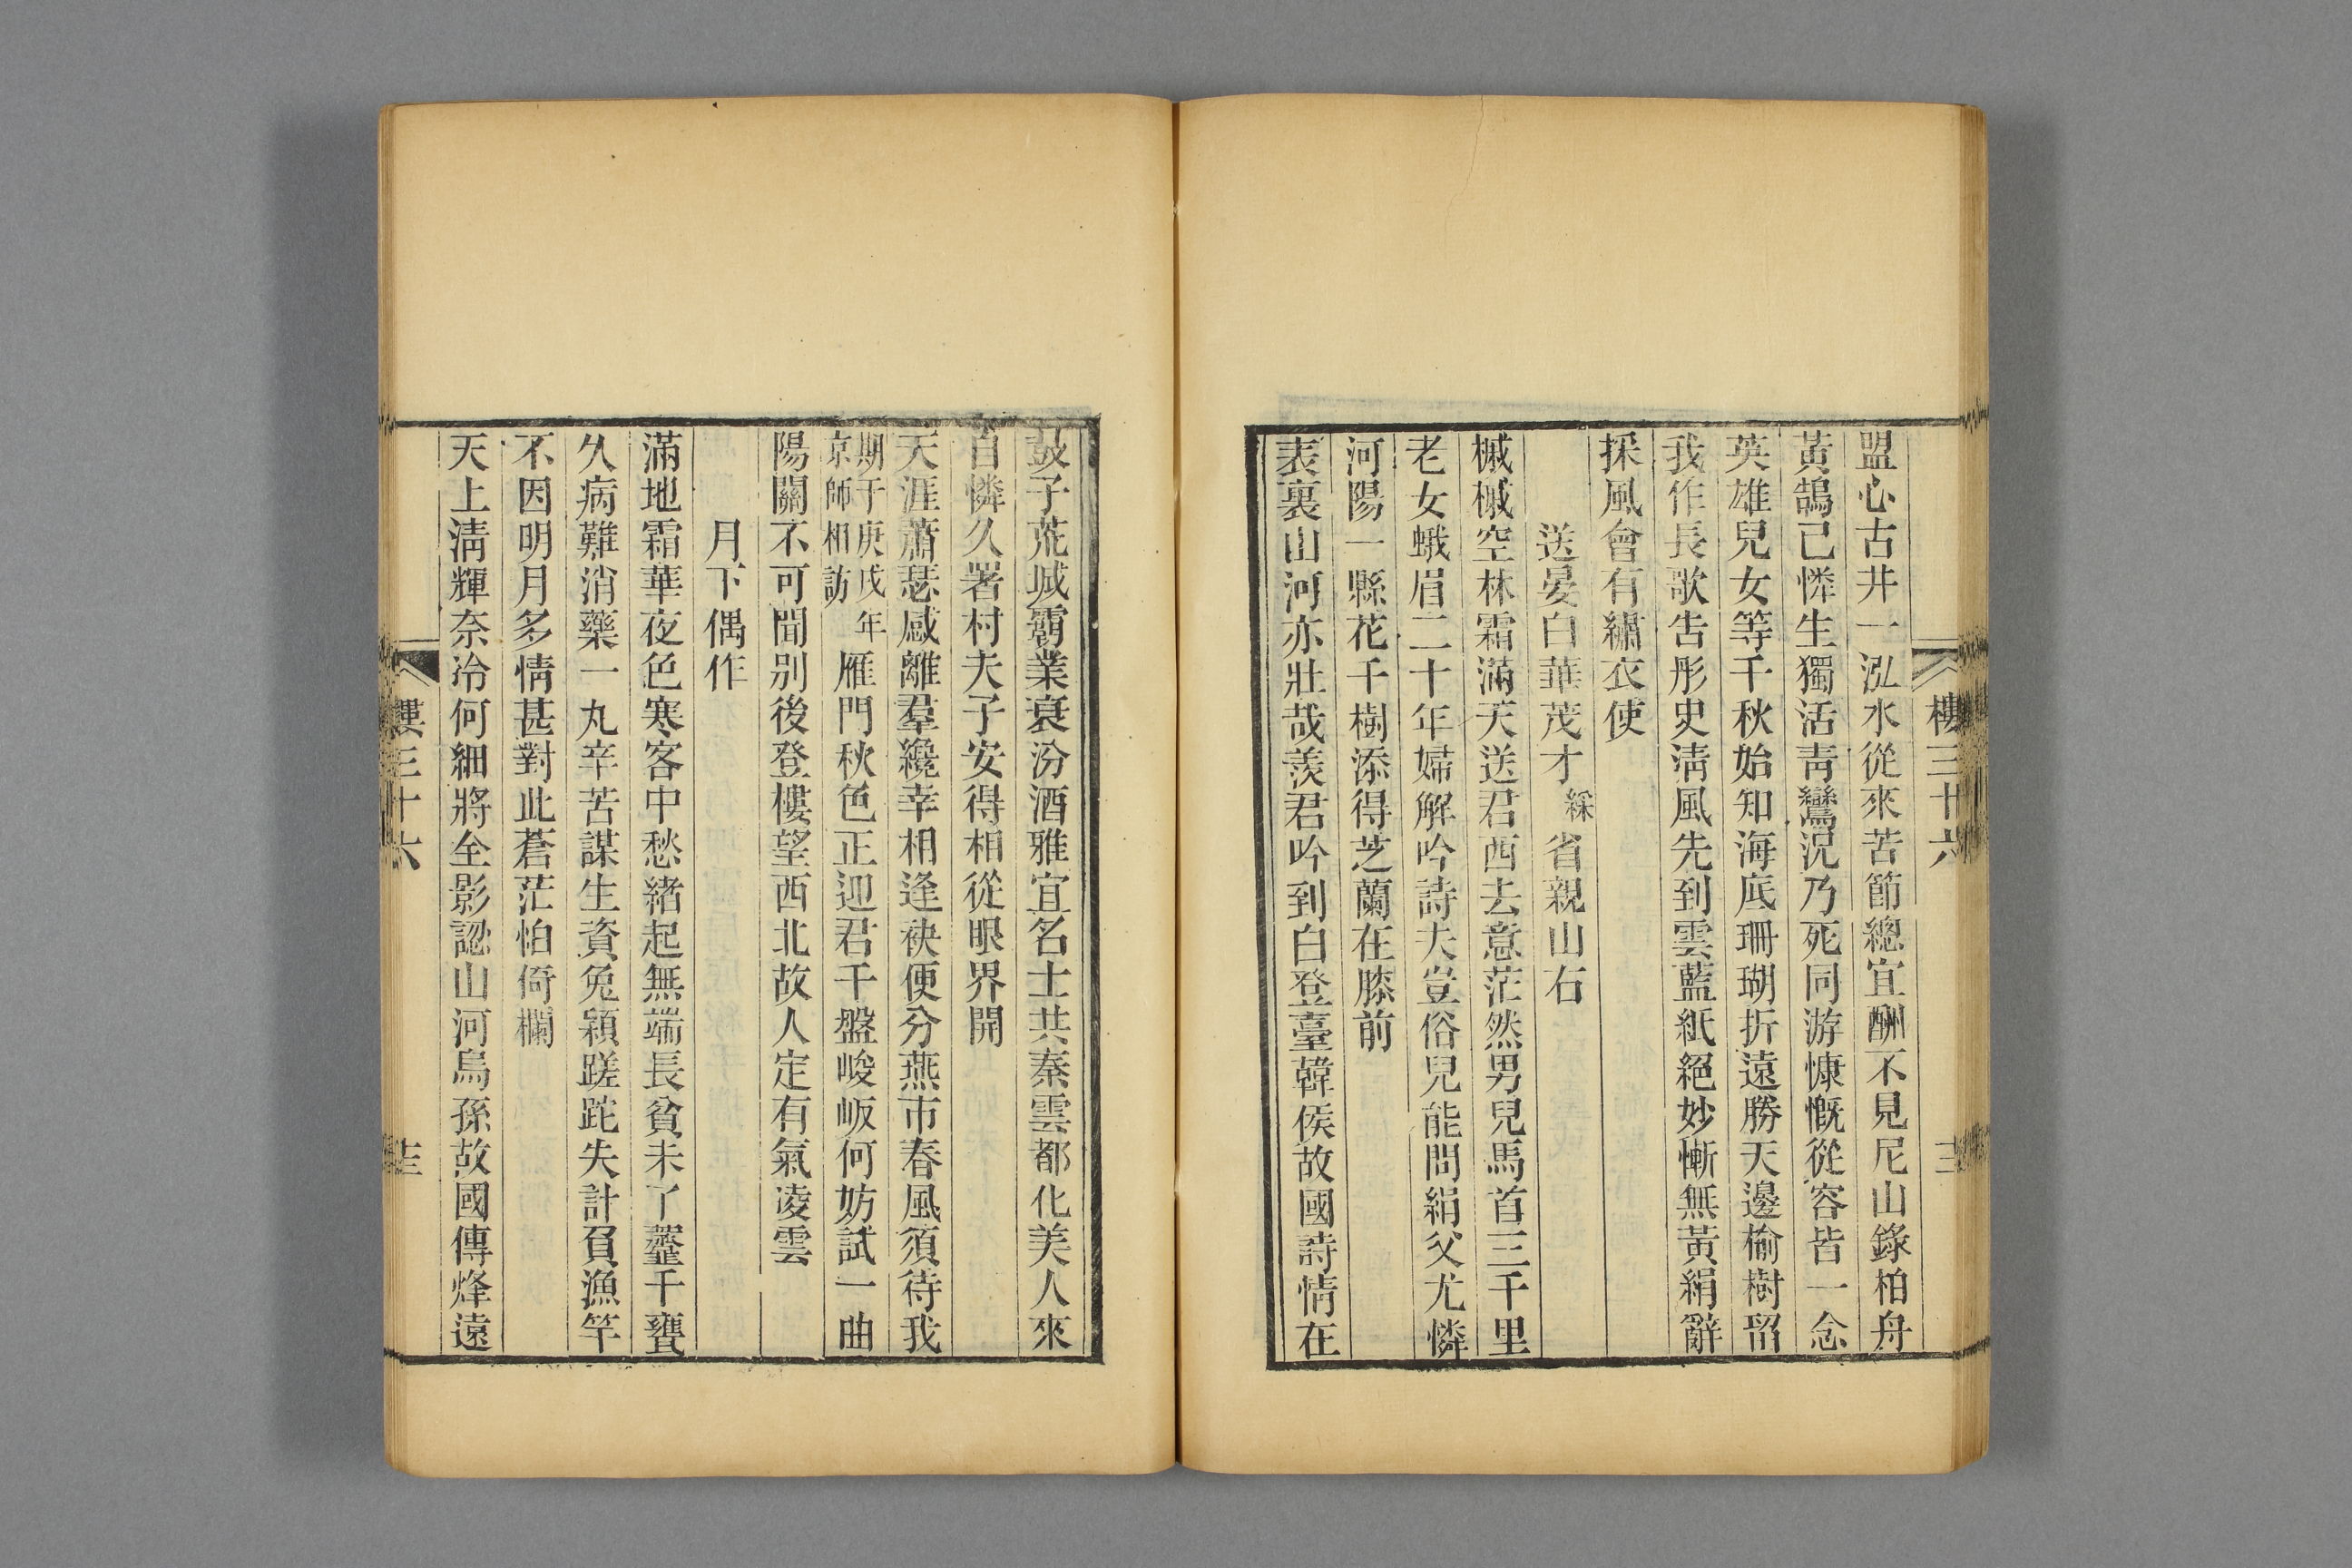 盟心古井一泓水從來苦節總宜酬不見尼山錄柏舟
黃鵠已憐生獨活靑鸞況乃死同游慷慨從容皆一念
英雄兒女等千秋始知海底珊瑚折遠勝天邊榆樹留
我作長歌告彤史淸風先到雲藍紙絕妙慚無黃絹辭
採風會有繡衣使
送晏白華茂才綵省親山右
槭槭空林霜滿天送君西去意茫然男兒馬首三千里
老女蛾眉二十年婦解吟詩夫豈俗兒能問絹父尤憐
河陽一縣花千樹添得芝蘭在膝前
表裏山河亦壯哉羨君吟到白登臺韓侯故國詩情在
樓三十六
鼓子荒城霸業衰汾酒雅宜名士共秦雲都化美人來
自憐久署村夫子安得相從眼界開
天涯蕭瑟感離羣纔幸相逢袂便分燕市春風須待我
期于庚戌年
京師相訪
雁門秋色正迎君千盤峻岅何妨試一曲
陽關不可聞別後登樓望西北故人定有氣凌雲
月下偶作
滿地霜華夜色寒客中愁緒起無端長貧未了虀千甕
久病難消藥一丸辛苦謀生資兔穎蹉跎失計負漁竿
不因明月多情甚對此蒼茫怕倚欄
天上淸輝奈冷何細將全影認山河烏孫故國傳烽遠
樓三十六